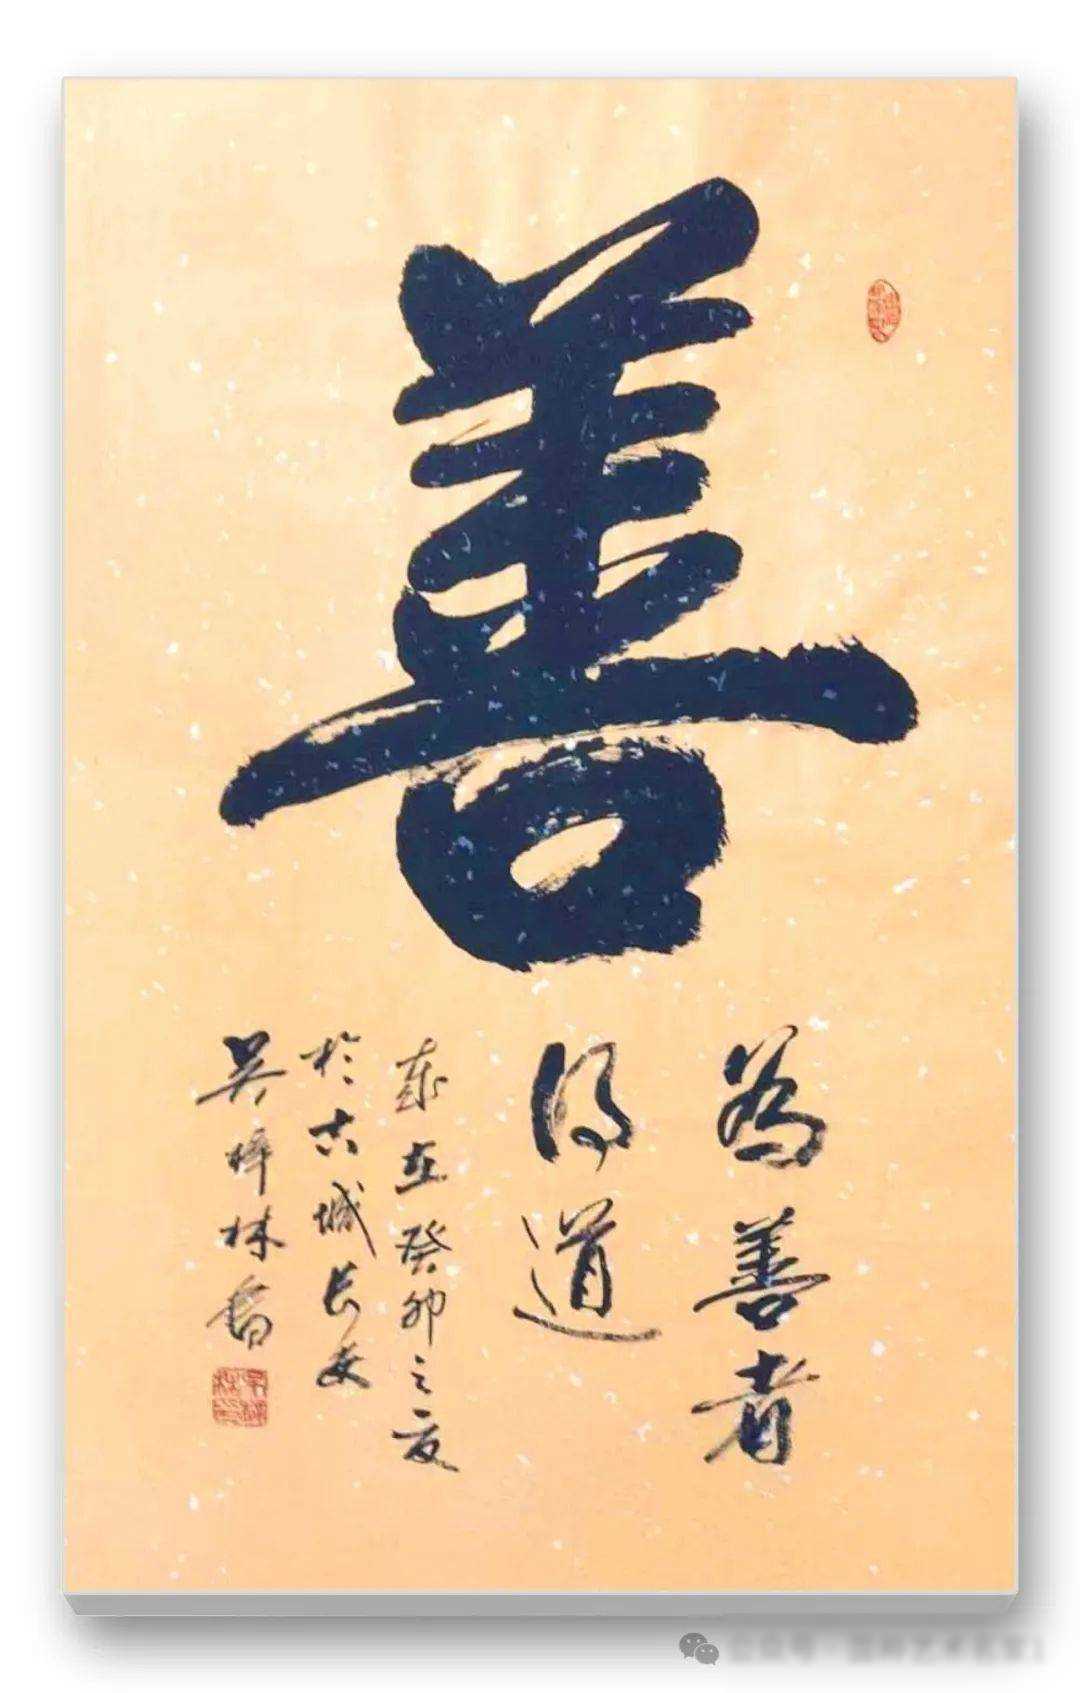 善
為善者
得道
歲在癸卯之夏
於古城長安
吴坤林書